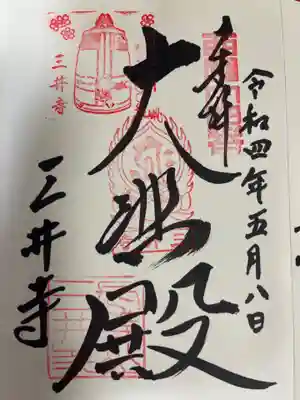 令和四年五月八日
奉拝
大悲殿
三井寺
三井寺